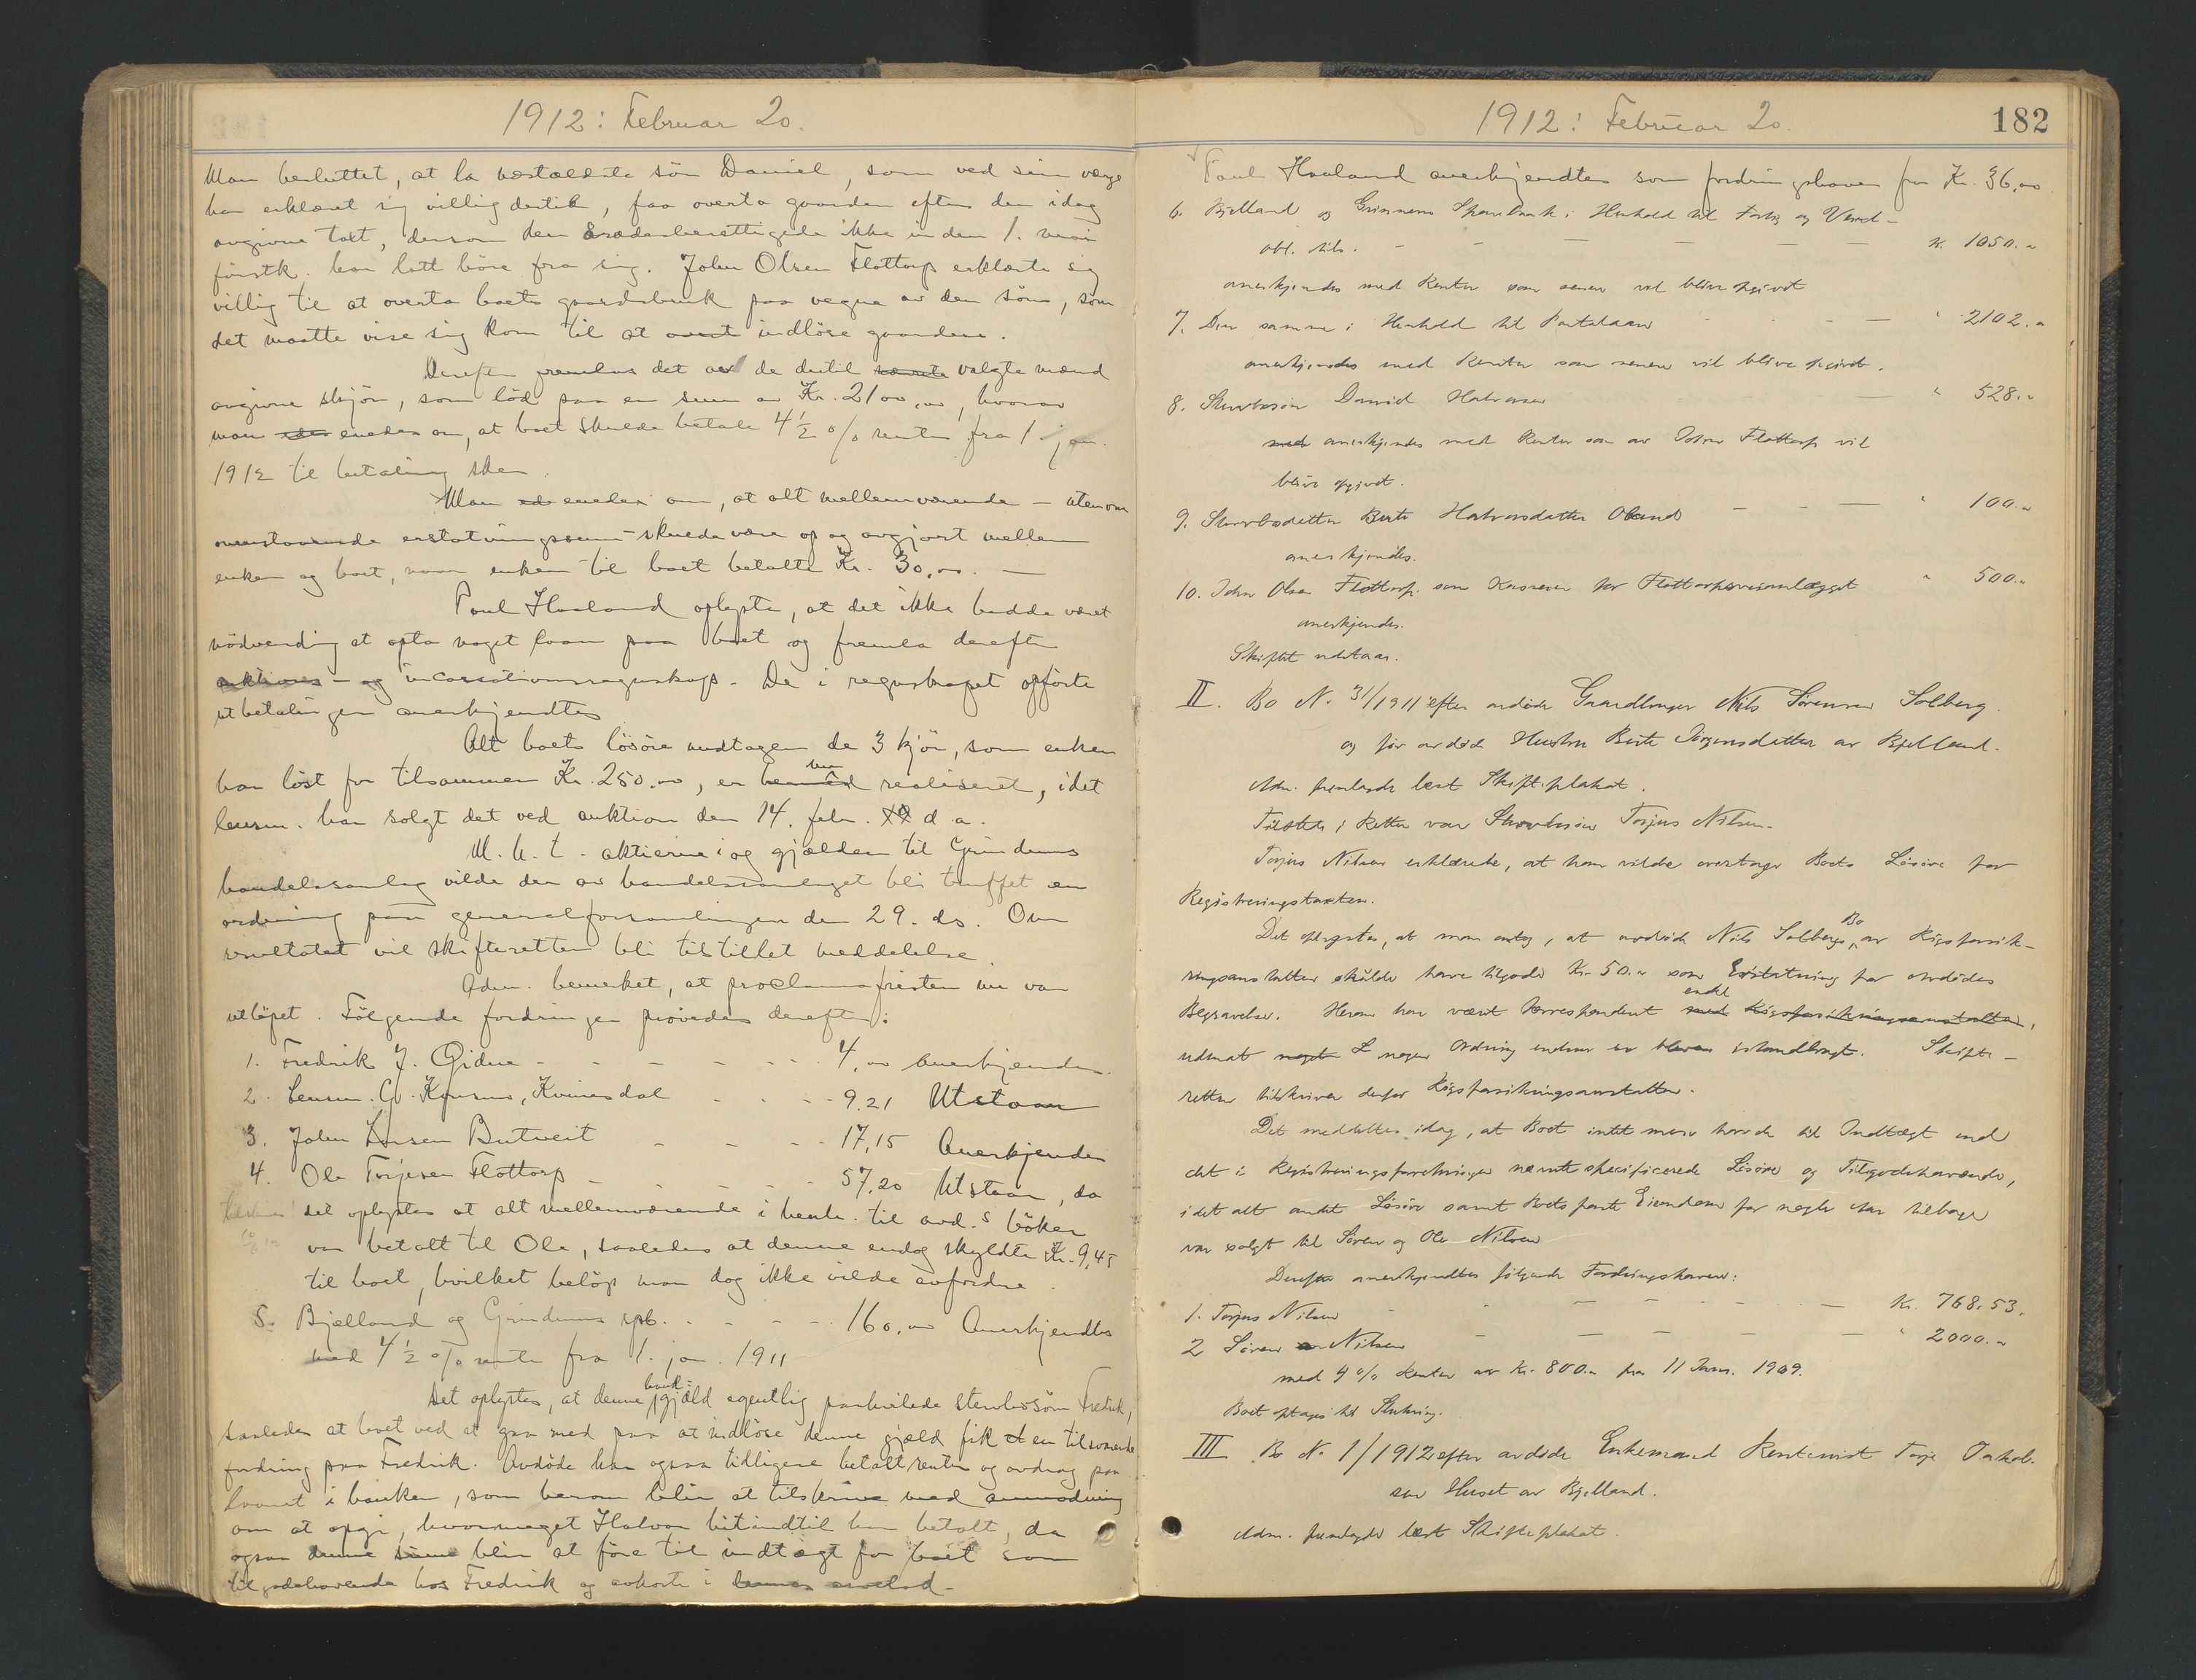 1912: Februar 20.
Man besluttet, at la næstældste sön Daniel, som ved sin verge
har erklæret sig villig dertil, faa overta gaarden efter den idag
avgivne takst, dersom den aasædesberettigede ikke inden 1. mai
förstk. har latt höre fra sig. John Olsen Flottorp erklærte sig
villig til at overta boets gaardsbruk paa vegne av den sön, som
det maatte vise sig kom til at indlöse gaarden.
Derefter fremlas det av de dertil valgte mænd
avgivne skjön, som löd paa en sum av Kr. 2100,00, hvorav
man enedes om, at boet skulde betale 4½ % rente fra 1 jan.
1912 til betaling sker.
Man enedes om, at alt mellemværende – utenom
ovenstaaende erstatningssum – skulde være op og avgjort mellem
enken og boet, naar enken til boet betalte Kr. 30,00. —
Paul Haaland oplyste, at det ikke hadde været
nödvendig at opta noget laan paa boet og fremla derefter
auktions- og incassationsregnskap. De i regnskapet opförte
utbetalinger anerkjendtes
Alt boets lösöre undtagen de 3 kjör, som enken
har löst for tilsammen Kr. 250.00, er nu realiseret, idet
lensm. har solgt det ved auktion den 14. febr. d. a.
M. h. t. aktierne i og gjælden til Grindums
handelssamlag vilde der av handelssamlaget bli truffet en
ordning paa generalforsamlingen den 29. ds. Om
resultatet vil skifteretten bli tilstillet meddelelse.
Adm. bemerket, at proclamafristen nu var
utlöpet. Fölgende fordringer prövedes derefter:
1. Fredrik J. Gidne - - - - 4,00 Anerkjendes.
2. Lensm. Kvinesdal - - - 9.21 Utstaar
3. John Larsen Butveit - - - 17,15 Anerkjendes
4. Ole Torjesen Flottorp - - - 57,20 Utstaar, da
det oplystes at alt mellemværende i henh. til avd.s böker
var betalt til Ole, saaledes at denne endog skyldte Kr. 9,45
til boet, hvilket belöp man dog ikke vilde avfordre.
5. Bjelland og Grindums spb. - - - 160,00 Anerkjendtes
med 4½ % rente fra 1. jan. 1911
Det oplystes, at denne bank-gjæld egentlig paahvilede stervbosön Fredrik,
saaledes at boet ved at gaa med paa at indlöse denne gjæld fik en tilsvarende
fordring paa Fredrik. Avdöde har ogsaa tidligere betalt renter og avdrag paa
laanet i banken, som herom blir at tilskrive med anmodning
om at opgi, hvormeget Halvor hitindtil har betalt, da
ogsaa denne blir at före til indtægt for boet som
tilgodehavende hos Fredrik og avkorte i
1912: Februar 20.
182
Paul Haaland anerkjendtes som fordringshaver for Kr. 36,00
6. Bjelland og Grinnems Sparebank i Henhold til Forlig og Vexel-
obl. tils. - - - - Kr. 1050.00
anerkjendes med Renter som senere vil blive opgivet
7. Den samme i Henhold til Pantelaan - - - " 2102.00
anerkjendes med Renter som senere vil blive opgivet.
8. Stervbosön Daniel Halvorsen - " 528.00
anerkjendes med Renter som av John Flottorp vil
blive opgivet.
9. Stervbodatter Berte Halvorsdatter - - - " 100.00
anerkjendes.
10. John Olsen Flottorp som Kasserer for " 500.00
anerkjendes.
Skiftet utstaar.
II. Bo No 31/1911 efter avdöde Gaardbruger Nils Sörensen Solberg
og för avdöde Hustru Berte Jörgensdatter av Bjelland.
Adm. fremlagde læst Skifteplakat.
Tilstede i Retten var Stervbosön Torjus Nilsen.
Torjus Nilsen erklærede, at han vilde overtage Boets Lösöre for
Registreringstaxten.
Det oplystes, at man antog, at avdöde Nils Solbergs Bo, av Rigsforsik-
ringsanstalten skulde have tilgode Kr. 50.00 som Erstatning for avdödes
Begravelse. Herom har været korrespondert endel,
uden at nogen Ordning endnu er istandbragt. Skifte-
retten tilskriver derfor Rigsforsikringsanstalten.
Det meddeltes idag, at Boet intet mere havde til Indtægt end
det i Registreringsforretningen nævnte specificerede Lösöre og Tilgodehavende,
idet alt andet Lösöre samt Boets faste Eiendom for nogle Aar tilbage
var solgt til Sören og Ole Nilsen
Derefter anerkjendtes fölgende Fordringshavere:
1. Torjus Nilsen - - - - Kr. 768.53.
2 Sören Nilsen - - - - " 2000.00
med 4 % Renter av Kr. 800.00 fra 11 Janr. 1909.
Boet optages til Slutning.
III Bo No 1/1912 efter avdöde Enkemand Rentenist Torje Jakob-
sen Huset av Bjelland.
Adm. fremlagde læst Skifteplakat.